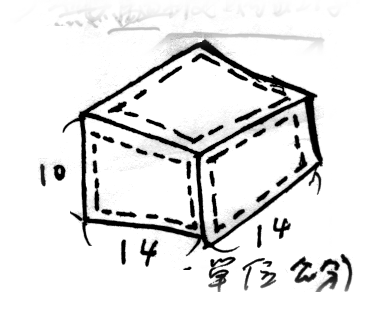 10
14
14
單位公分)